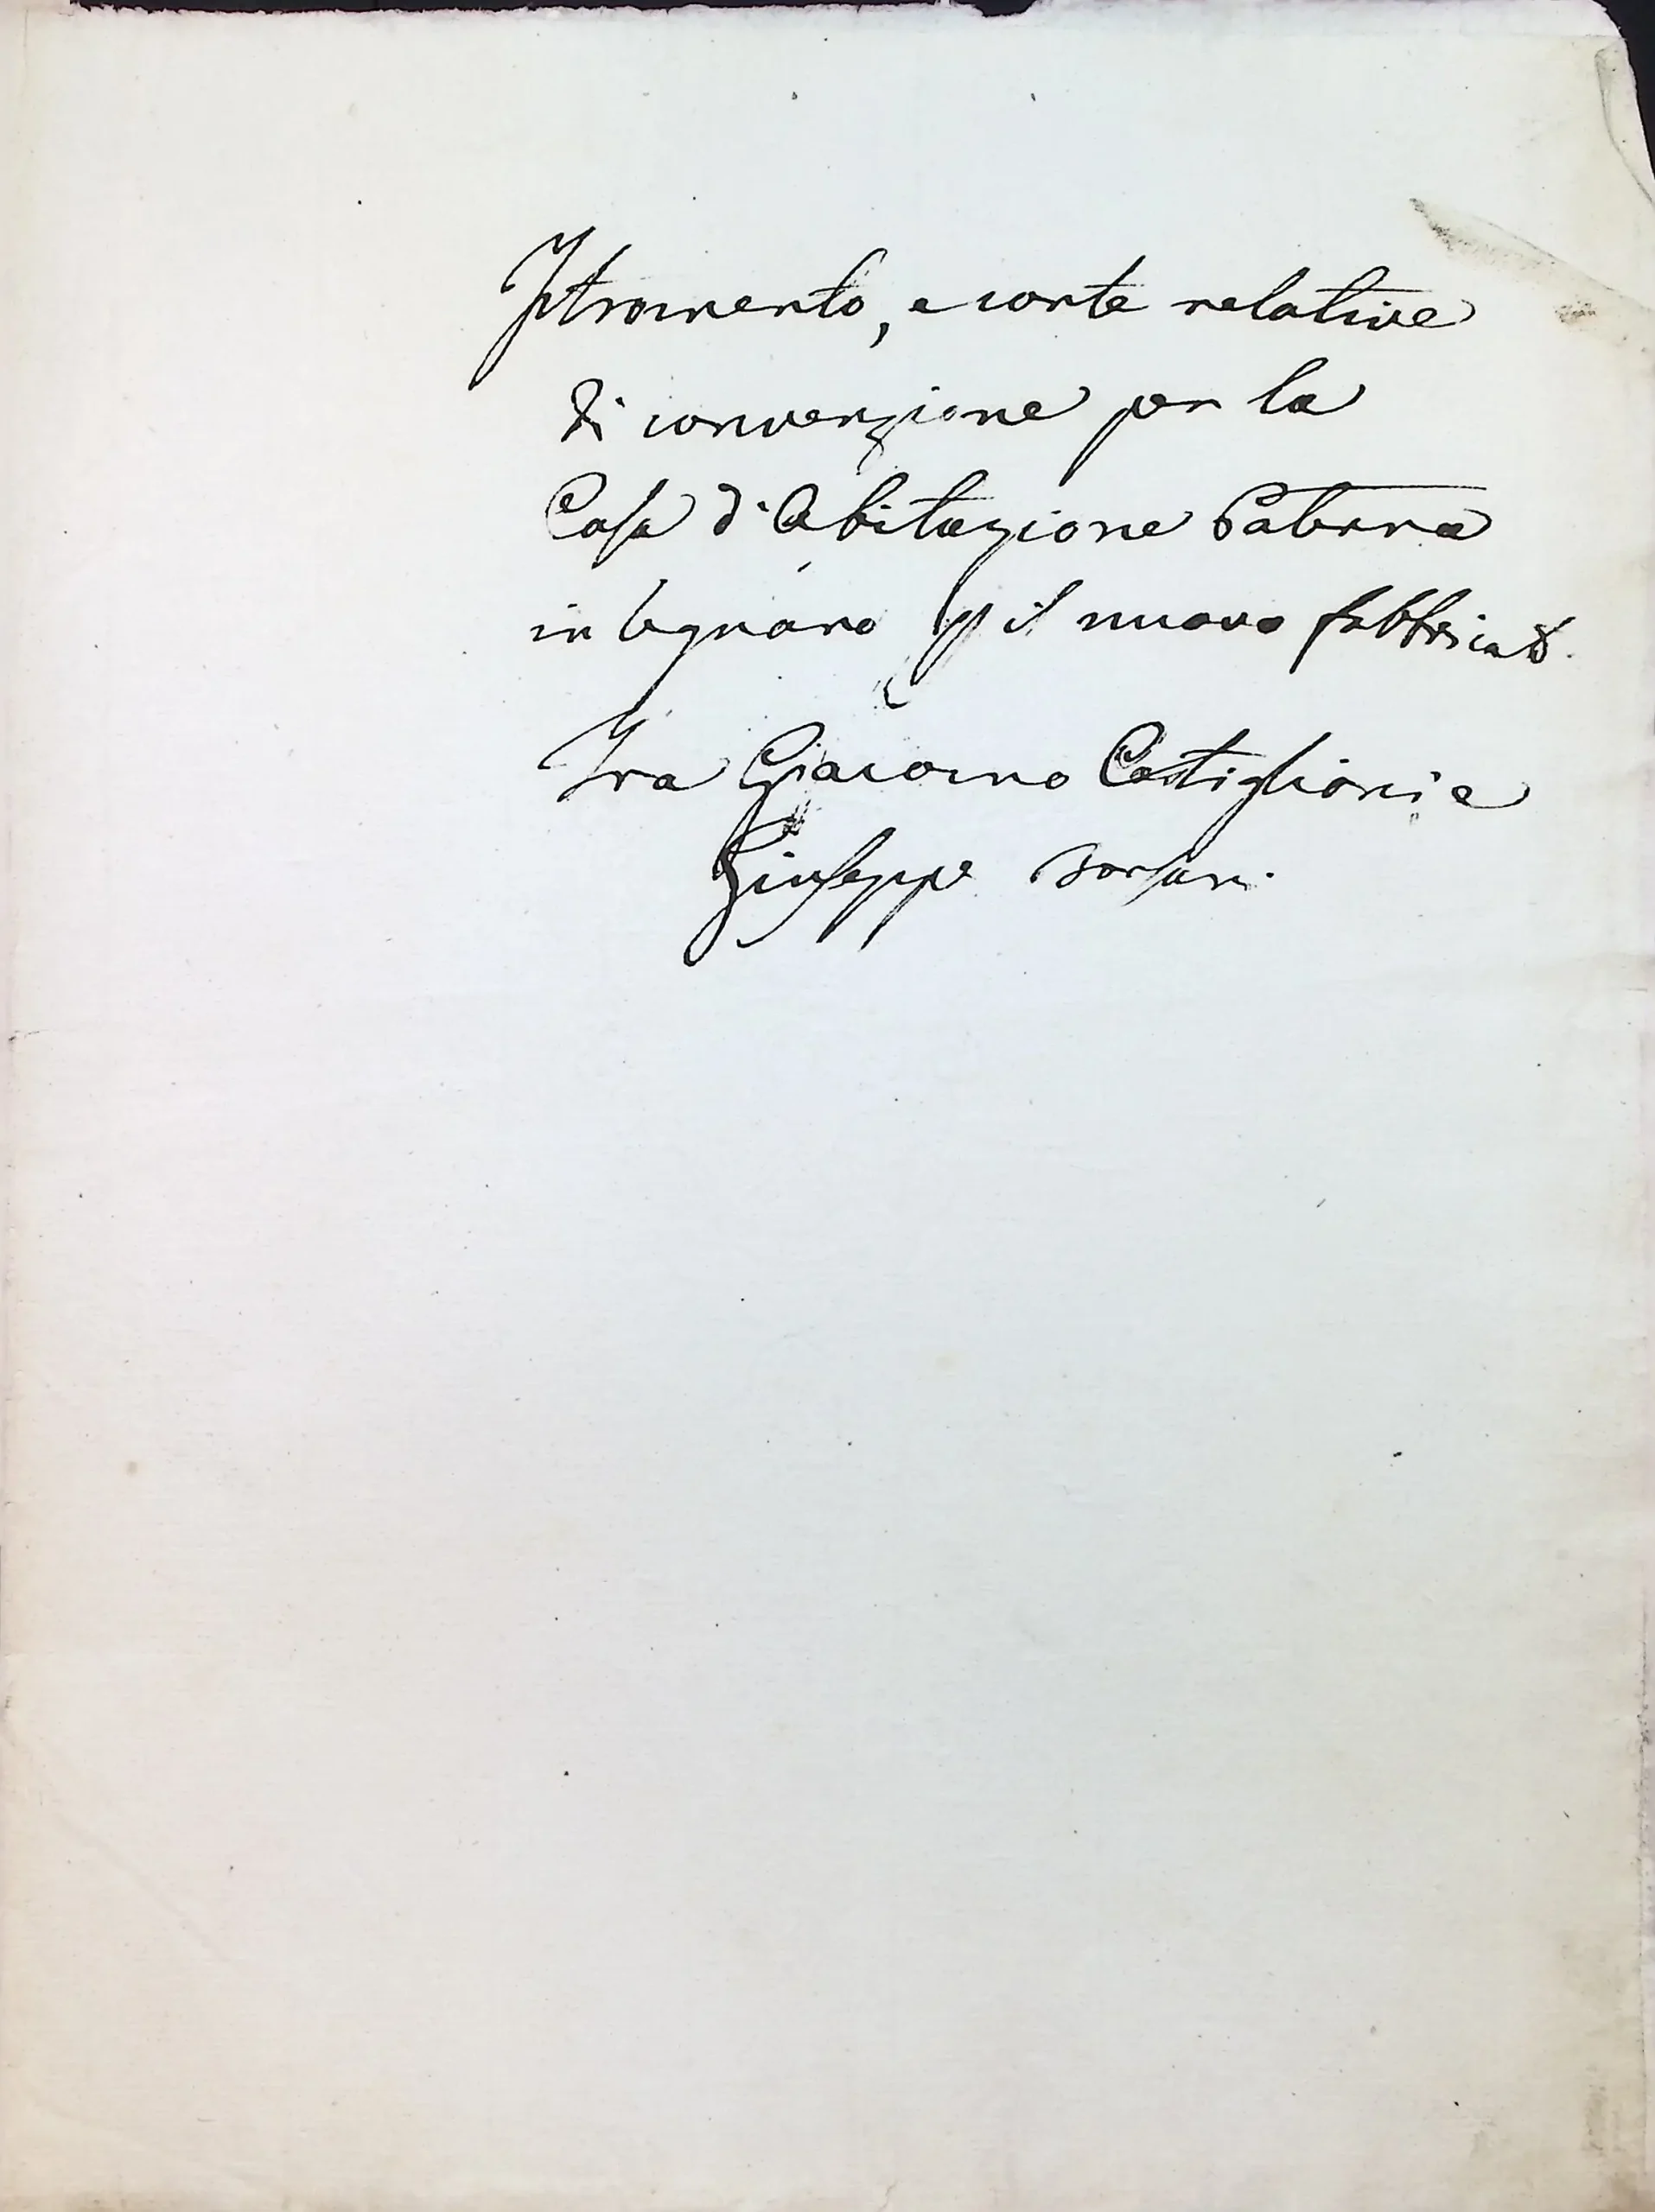 Istromento, e carte relative
di convenzione per la
Casa d'Abitazione Paterna
in Legnano p il nuovo fabbricato.
Fra Giacomo Castiglioni e
Giuseppe